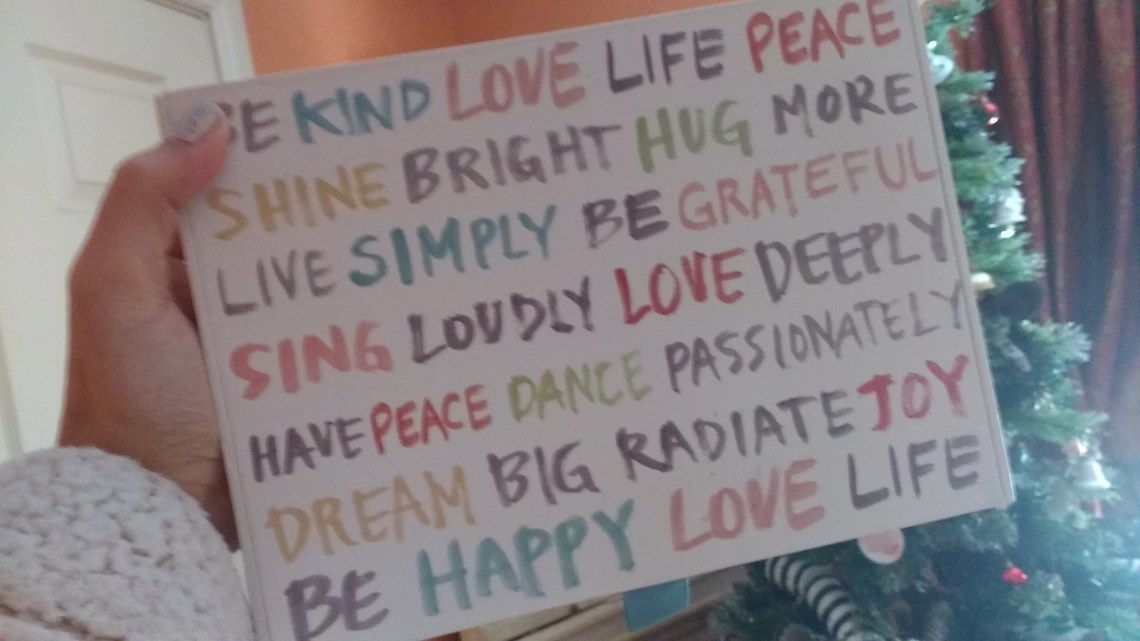 BE KIND LOVE LIFE PEACE
SHINE BRIGHT HUG MORE
LIVE SIMPLY BE GRATEFUL
SING LOUDLY LOVE DEEPLY
HAVE PEACE DANCE PASSIONATELY
DREAM BIG RADIATE JOY
BE HAPPY LOVE LIFE